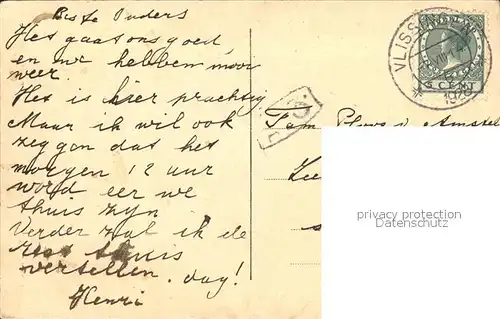 Beste Ouders
Het gaat ons goed
en we hebben mooi
weer.
Het is hier prachtig
Maar ik wil ook
zeggen dat het
morgen 12 uur
word eer we
thuis zijn
Verder zal ik de
rest thuis
vertellen. dag!
Henri
VLISSINGEN
VIII
1929
5 CENT
Fam.
privacy protection
Datenschutz